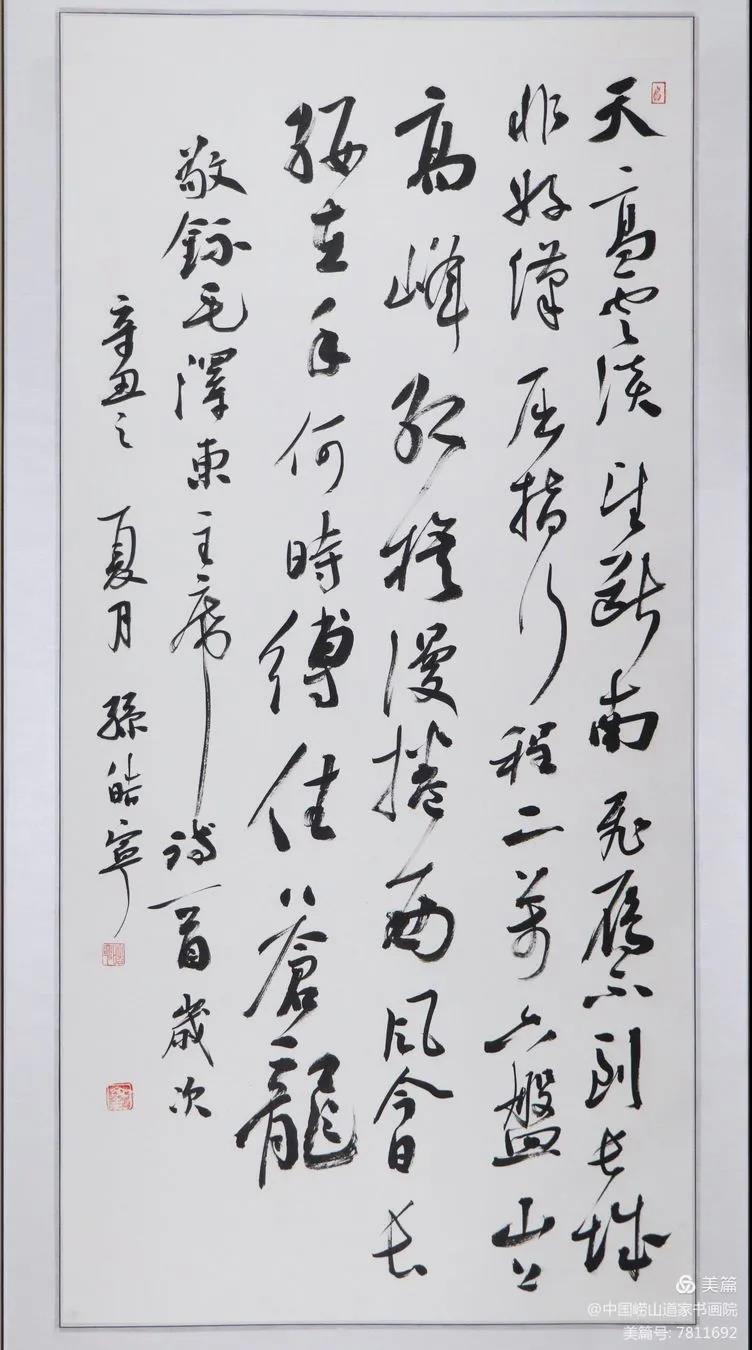 天高雲淡望斷南飛雁不到長城
非好漢屈指行程二萬六盤山上
高峰紅旗漫捲西風今日長
纓在手何時縛住蒼龍
敬錄毛澤東主席詩一首歲次
辛丑之夏月孫皓寧
美篇
@中国崂山道家书画院
美篇号: 7811692